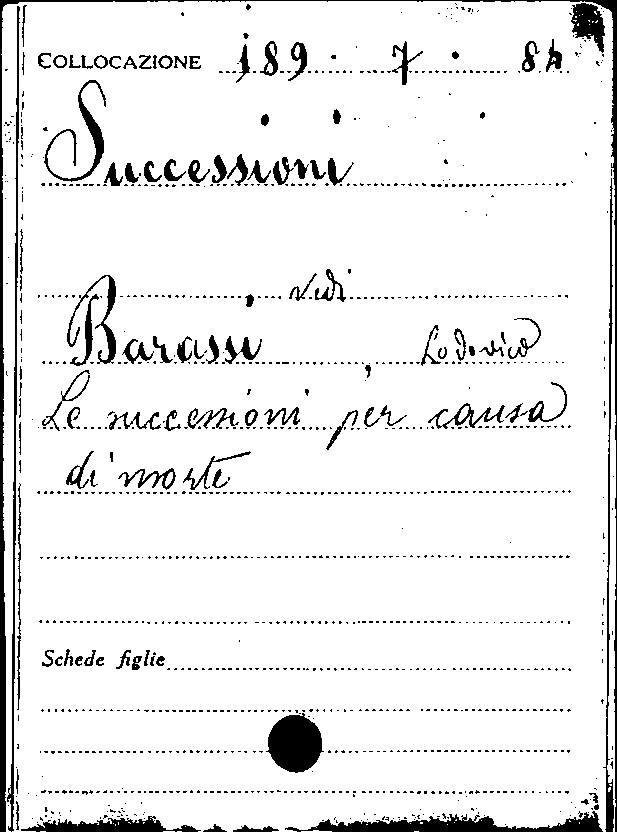 COLLOCAZIONE 189 · 7 · 84
Successioni
vedi
Barassi, Lodovico
Le successioni per causa
di morte
Schede figlie